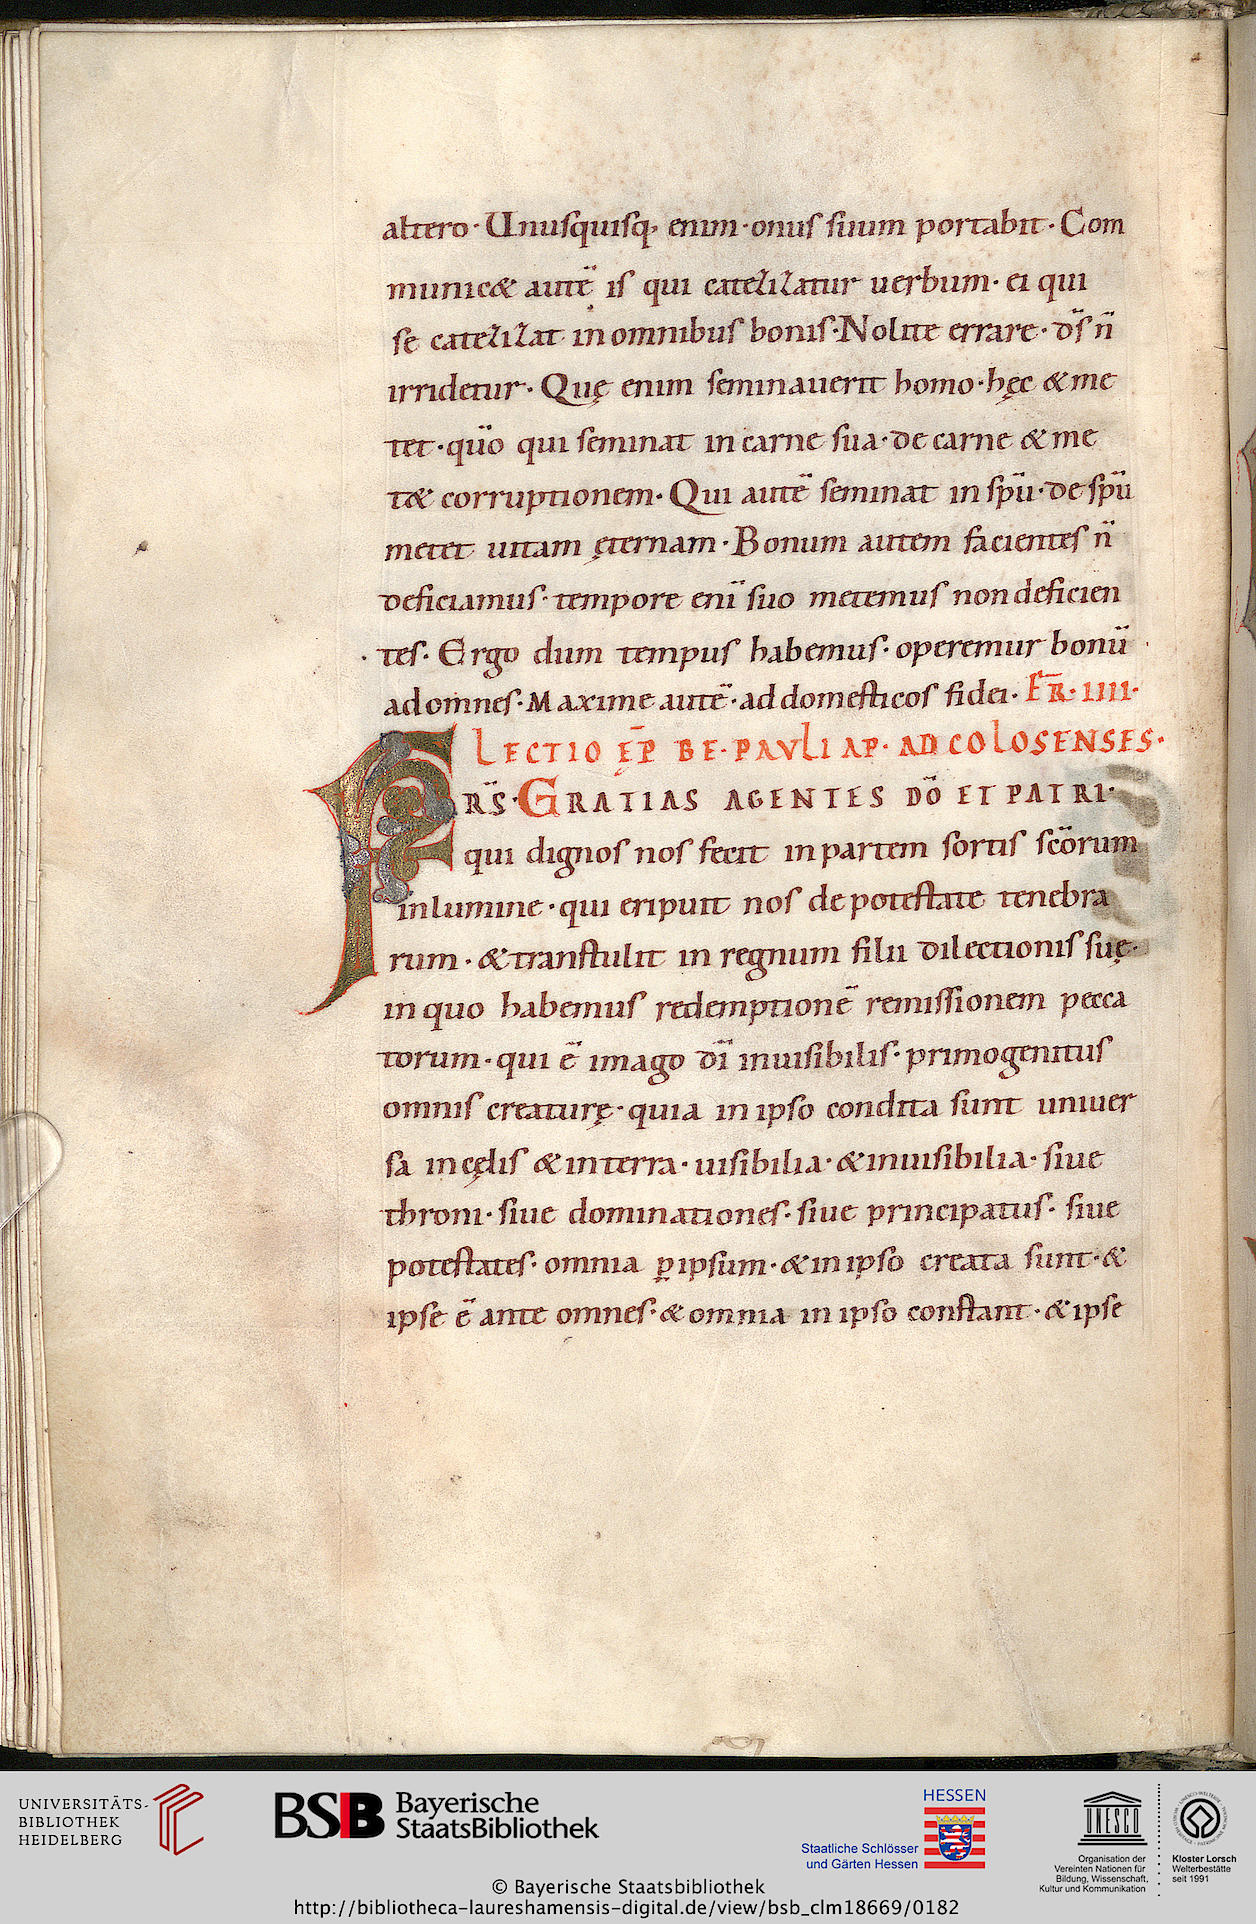 altero· Unusquisq; enim· onus suum portabit· Com
municæ autē is qui catezizatur uerbum· ei qui
se catezizat in omnibus bonis· Nolite errare· d̄s n̄
irridetur· Quę enim seminauerit homo· hęc & me
tet· qūo qui seminat in carne sua· de carne & me
tæ corruptionem· Qui autē seminat in sp̄u· de sp̄u
metet uitam ęternam· Bonum autem facientes n̄
deficiamus· tempore enī suo metemus non deficien
tes· Ergo dum tempus habemus· operemur bonū
ad omnes· Maxime autē· ad domesticos fidei· FR̄· IIII·
LECTIO ĘP̄ BE· PAVLI AP· AD COLOSENSES·
FR̄S· GRATIAS AGENTES DŌ ET PATRI·
qui dignos nos fecit in partem sortis sc̄orum
in lumine· qui eripuit nos de potestate tenebra
rum· & transtulit in regnum filii dilectionis suę·
in quo habemus redemptionē remissionem pecca
torum· qui ē imago dī inuisibilis· primogenitus
omnis creaturę· quia in ipso condita sunt uniuer
sa in cęlis & in terra· uisibilia· & inuisibilia· siue
throni· siue dominationes· siue principatus· siue
potestates· omnia ꝑ ipsum· & in ipso creata sunt· &
ipse ē ante omnes· & omnia in ipso constant· & ipse
UNIVERSITÄTS-
BIBLIOTHEK
HEIDELBERG
BSB Bayerische
StaatsBibliothek
HESSEN
Staatliche Schlösser
und Gärten Hessen
UNESCO
Organisation der
Vereinten Nationen für
Bildung, Wissenschaft,
Kultur und Kommunikation
Kloster Lorsch
Welterbestätte
seit 1991
© Bayerische Staatsbibliothek
http://bibliotheca-laureshamensis-digital.de/view/bsb_clm18669/0182